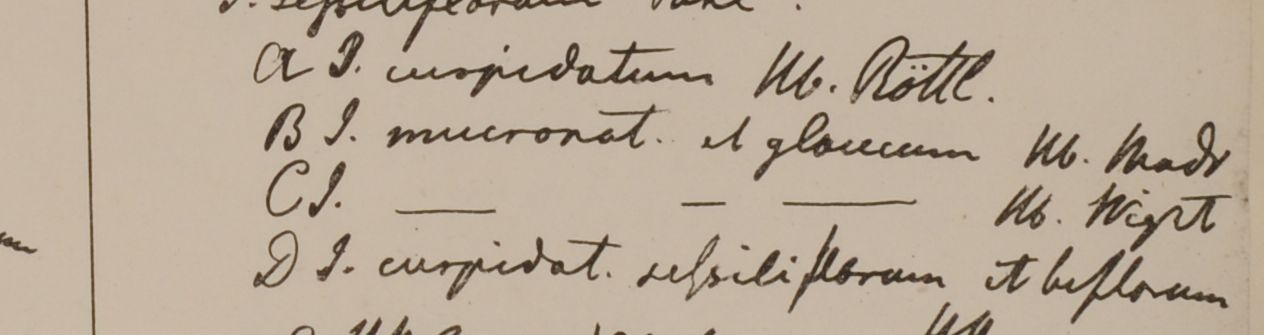 J. sessiliflorum Vahl.
A J. cuspidatum Hb. Röttl.
B J. mucronat. et glaucum Hb. Madr
C J. — — — Hb. Wight
D J. cuspidat. sessiliflorum et biflorum